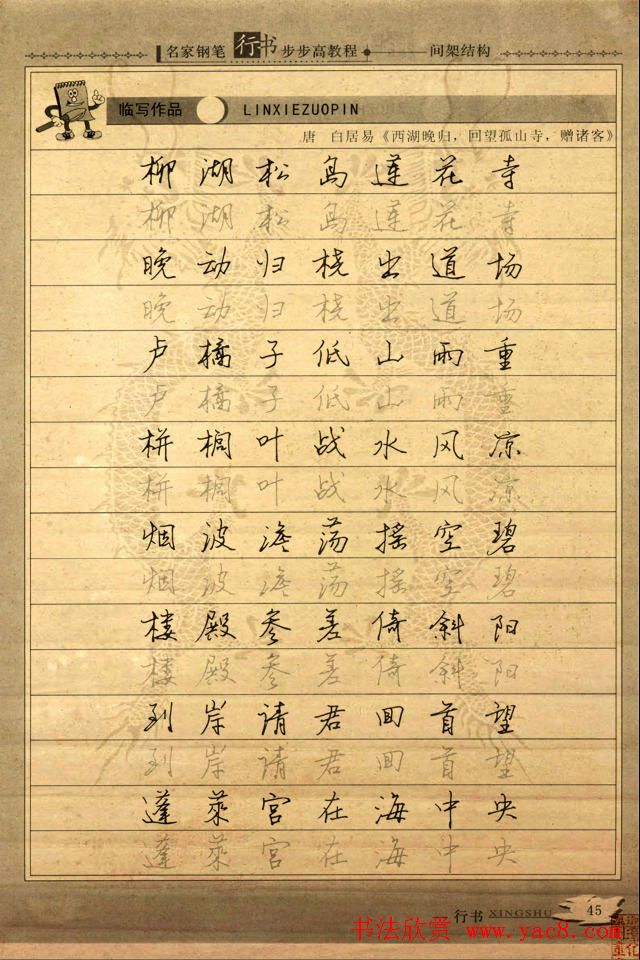 名家钢笔行书步步高教程 间架结构
临写作品 LINXIEZUOPIN
唐 白居易《西湖晚归，回望孤山寺，赠诸客》
柳湖松岛莲花寺
柳湖松岛莲花寺
晚动归桡出道场
晚动归桡出道场
卢橘子低山雨重
卢橘子低山雨重
栟榈叶战水风凉
栟榈叶战水风凉
烟波澹荡摇空碧
烟波澹荡摇空碧
楼殿参差倚斜阳
楼殿参差倚斜阳
到岸请君回首望
到岸请君回首望
蓬莱宫在海中央
蓬莱宫在海中央
行书 XINGSHU 45
书法欣赏 www.yac8.com